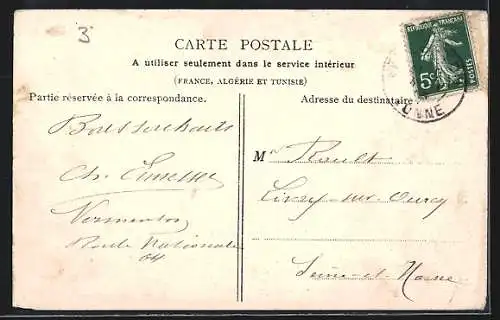 3
CARTE POSTALE
A utiliser seulement dans le service intérieur
(FRANCE, ALGÉRIE ET TUNISIE)
Partie réservée à la correspondance.
Adresse du destinataire
REPUBLIQUE FRANÇAISE
5c
POSTES
Bons souhaits
Ch.
Vermenton
Route Nationale
64
Mr Rault
Lizy-sur-Ourcq
Seine-et-Marne